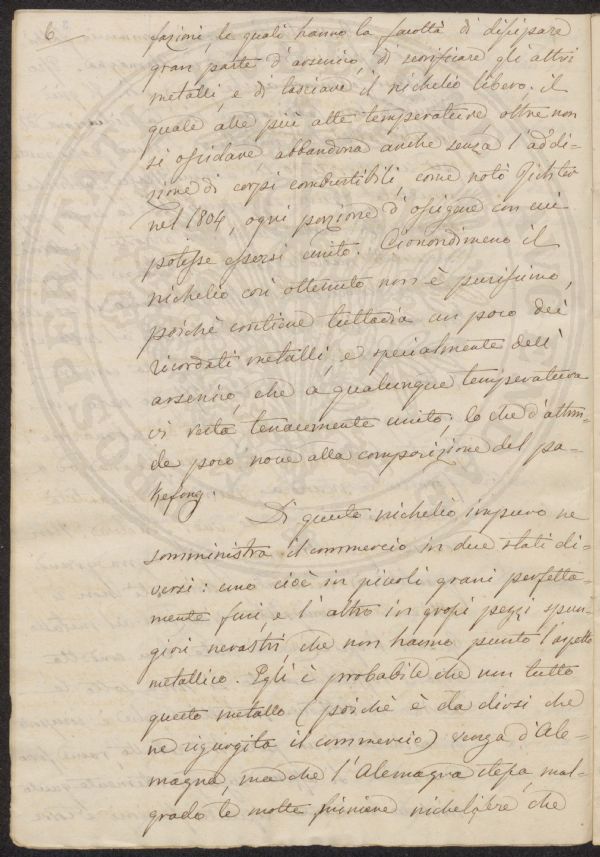 6
fazioni, le quali hanno la facoltà di dissipare
gran parte d'arsenico, di scorificare gli altri
metalli, e di lasciare il nichelio libero: il
quale alle più alte temperature, oltre non
si ossidare abbandona anche senza l'addi-
zione di corpi combustibili, come notò Richter
nel 1804, ogni porzione d'ossigene con cui
potesse essersi unito. Ciononдimeno il
nichelio così ottenuto non è purissimo,
poichè contiene tuttavia un poco dei
ricordati metalli, e specialmente dell'
arsenico, che a qualunque temperatura
vi resta tenacemente unito; lo che d'altron-
de poco nuoce alla composizione del pa-
kefong.
Di questo nichelio impuro ne
somministra il commercio in due stati di-
versi: uno cioè in piccoli grani perfetta-
mente fusi, e l'altro in grossi pezzi spun-
giosi nerastri, che non hanno punto l'aspetto
metallico. Egli è probabile che non tutto
questo metallo (poichè è da dirsi che
ne rigurgita il commercio) venga d'Ale-
magna, ma che l'Alemagna stessa, mal-
grado le molte miniere nichelifere, che